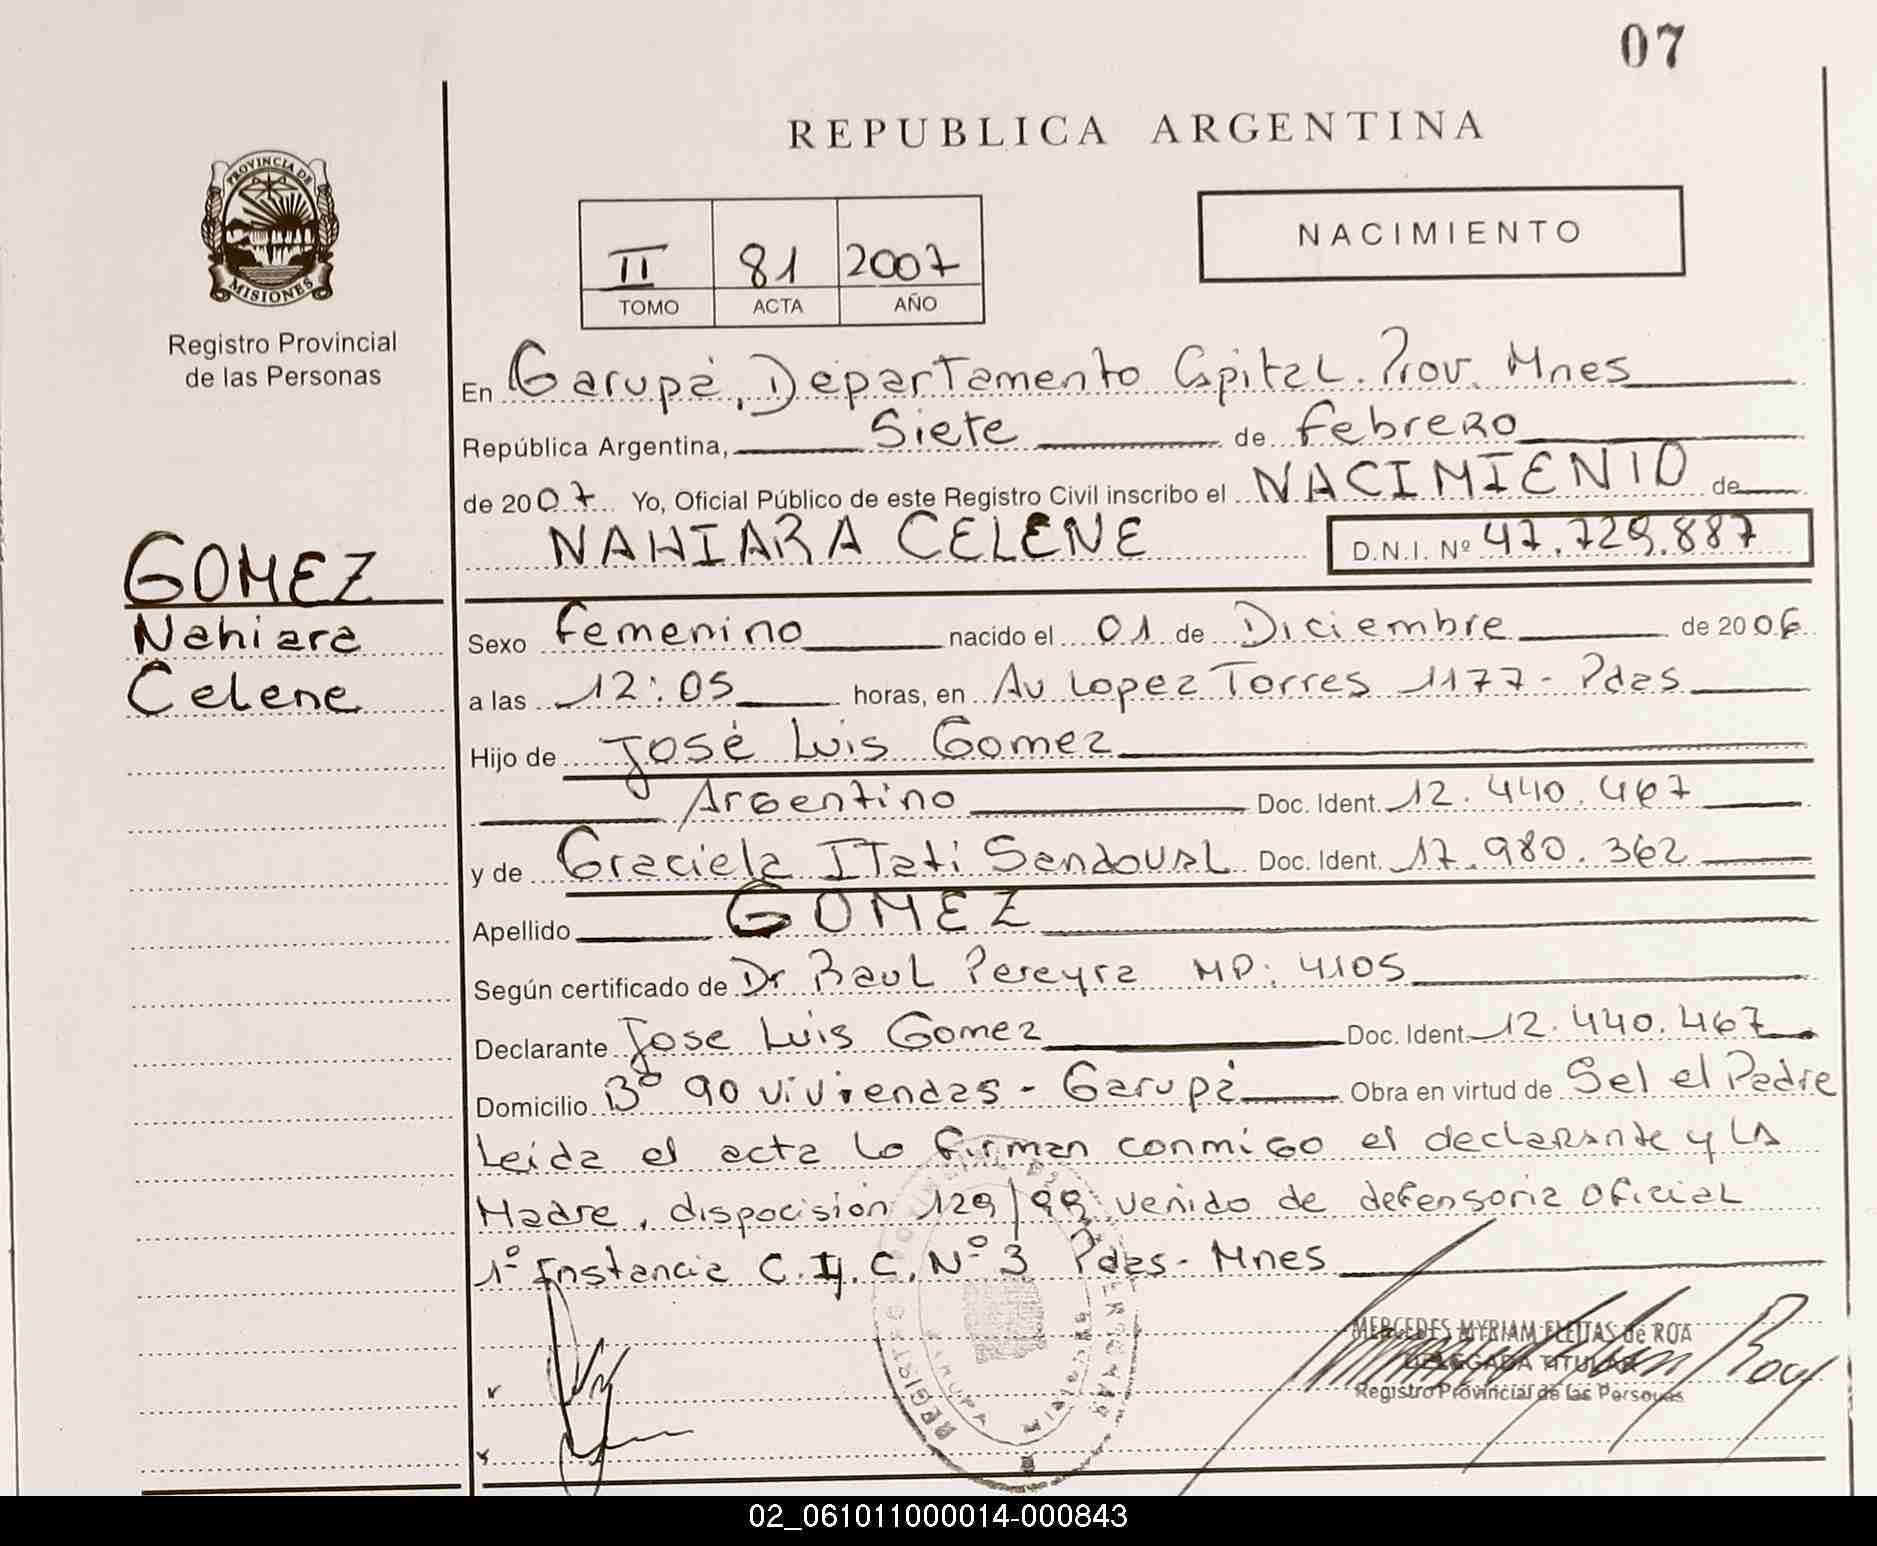 07
REPUBLICA ARGENTINA
PROVINCIA DE
MISIONES
Registro Provincial
de las Personas
II 81 2007
TOMO ACTA AÑO
NACIMIENTO
En Garupá, Departamento Capital. Prov. Mnes
República Argentina, Siete de febrero
de 2007 Yo, Oficial Público de este Registro Civil inscribo el NACIMIENTO de
NAHIARA CELENE D.N.I. Nº 47.729.887
GOMEZ
Nahiara
Celene
Sexo femenino nacido el 01 de Diciembre de 2006
a las 12:05 horas, en Av Lopez Torres 1177- Pdas
Hijo de José Luis Gomez
Argentino Doc. Ident. 12.440.467
y de Graciela Itati Sandoval Doc. Ident. 17.980.362
Apellido GOMEZ
Según certificado de Dr Raul Pereyra MP: 4105
Declarante Jose Luis Gomez Doc. Ident. 12.440.467
Domicilio Bº 90 viviendas - Garupá Obra en virtud de Sel el Padre
Leida el acta lo firman conmigo el declarante y la
Madre, dispocisión 129/99 venido de defensoria oficial
1º Instancia C.y.C. Nº 3 Pdas- Mnes
MERCEDES MYRIAM FLEITAS de ROA
DELEGADA TITULAR
Registro Provincial de las Personas
02_061011000014-000843